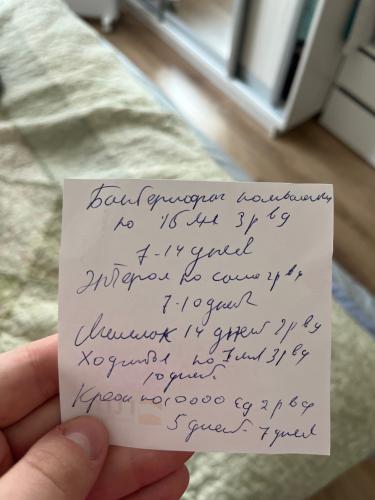 Бактериофаг
по 15 мл 3 р в д
7-14 дней
Энтерол по 2 р в д
7-10 дней
14 дней 2 р в д
по 7 мл 3 р в д
10 дней
Креон по 10000 ед 2 р в д
5 дней - 7 дней